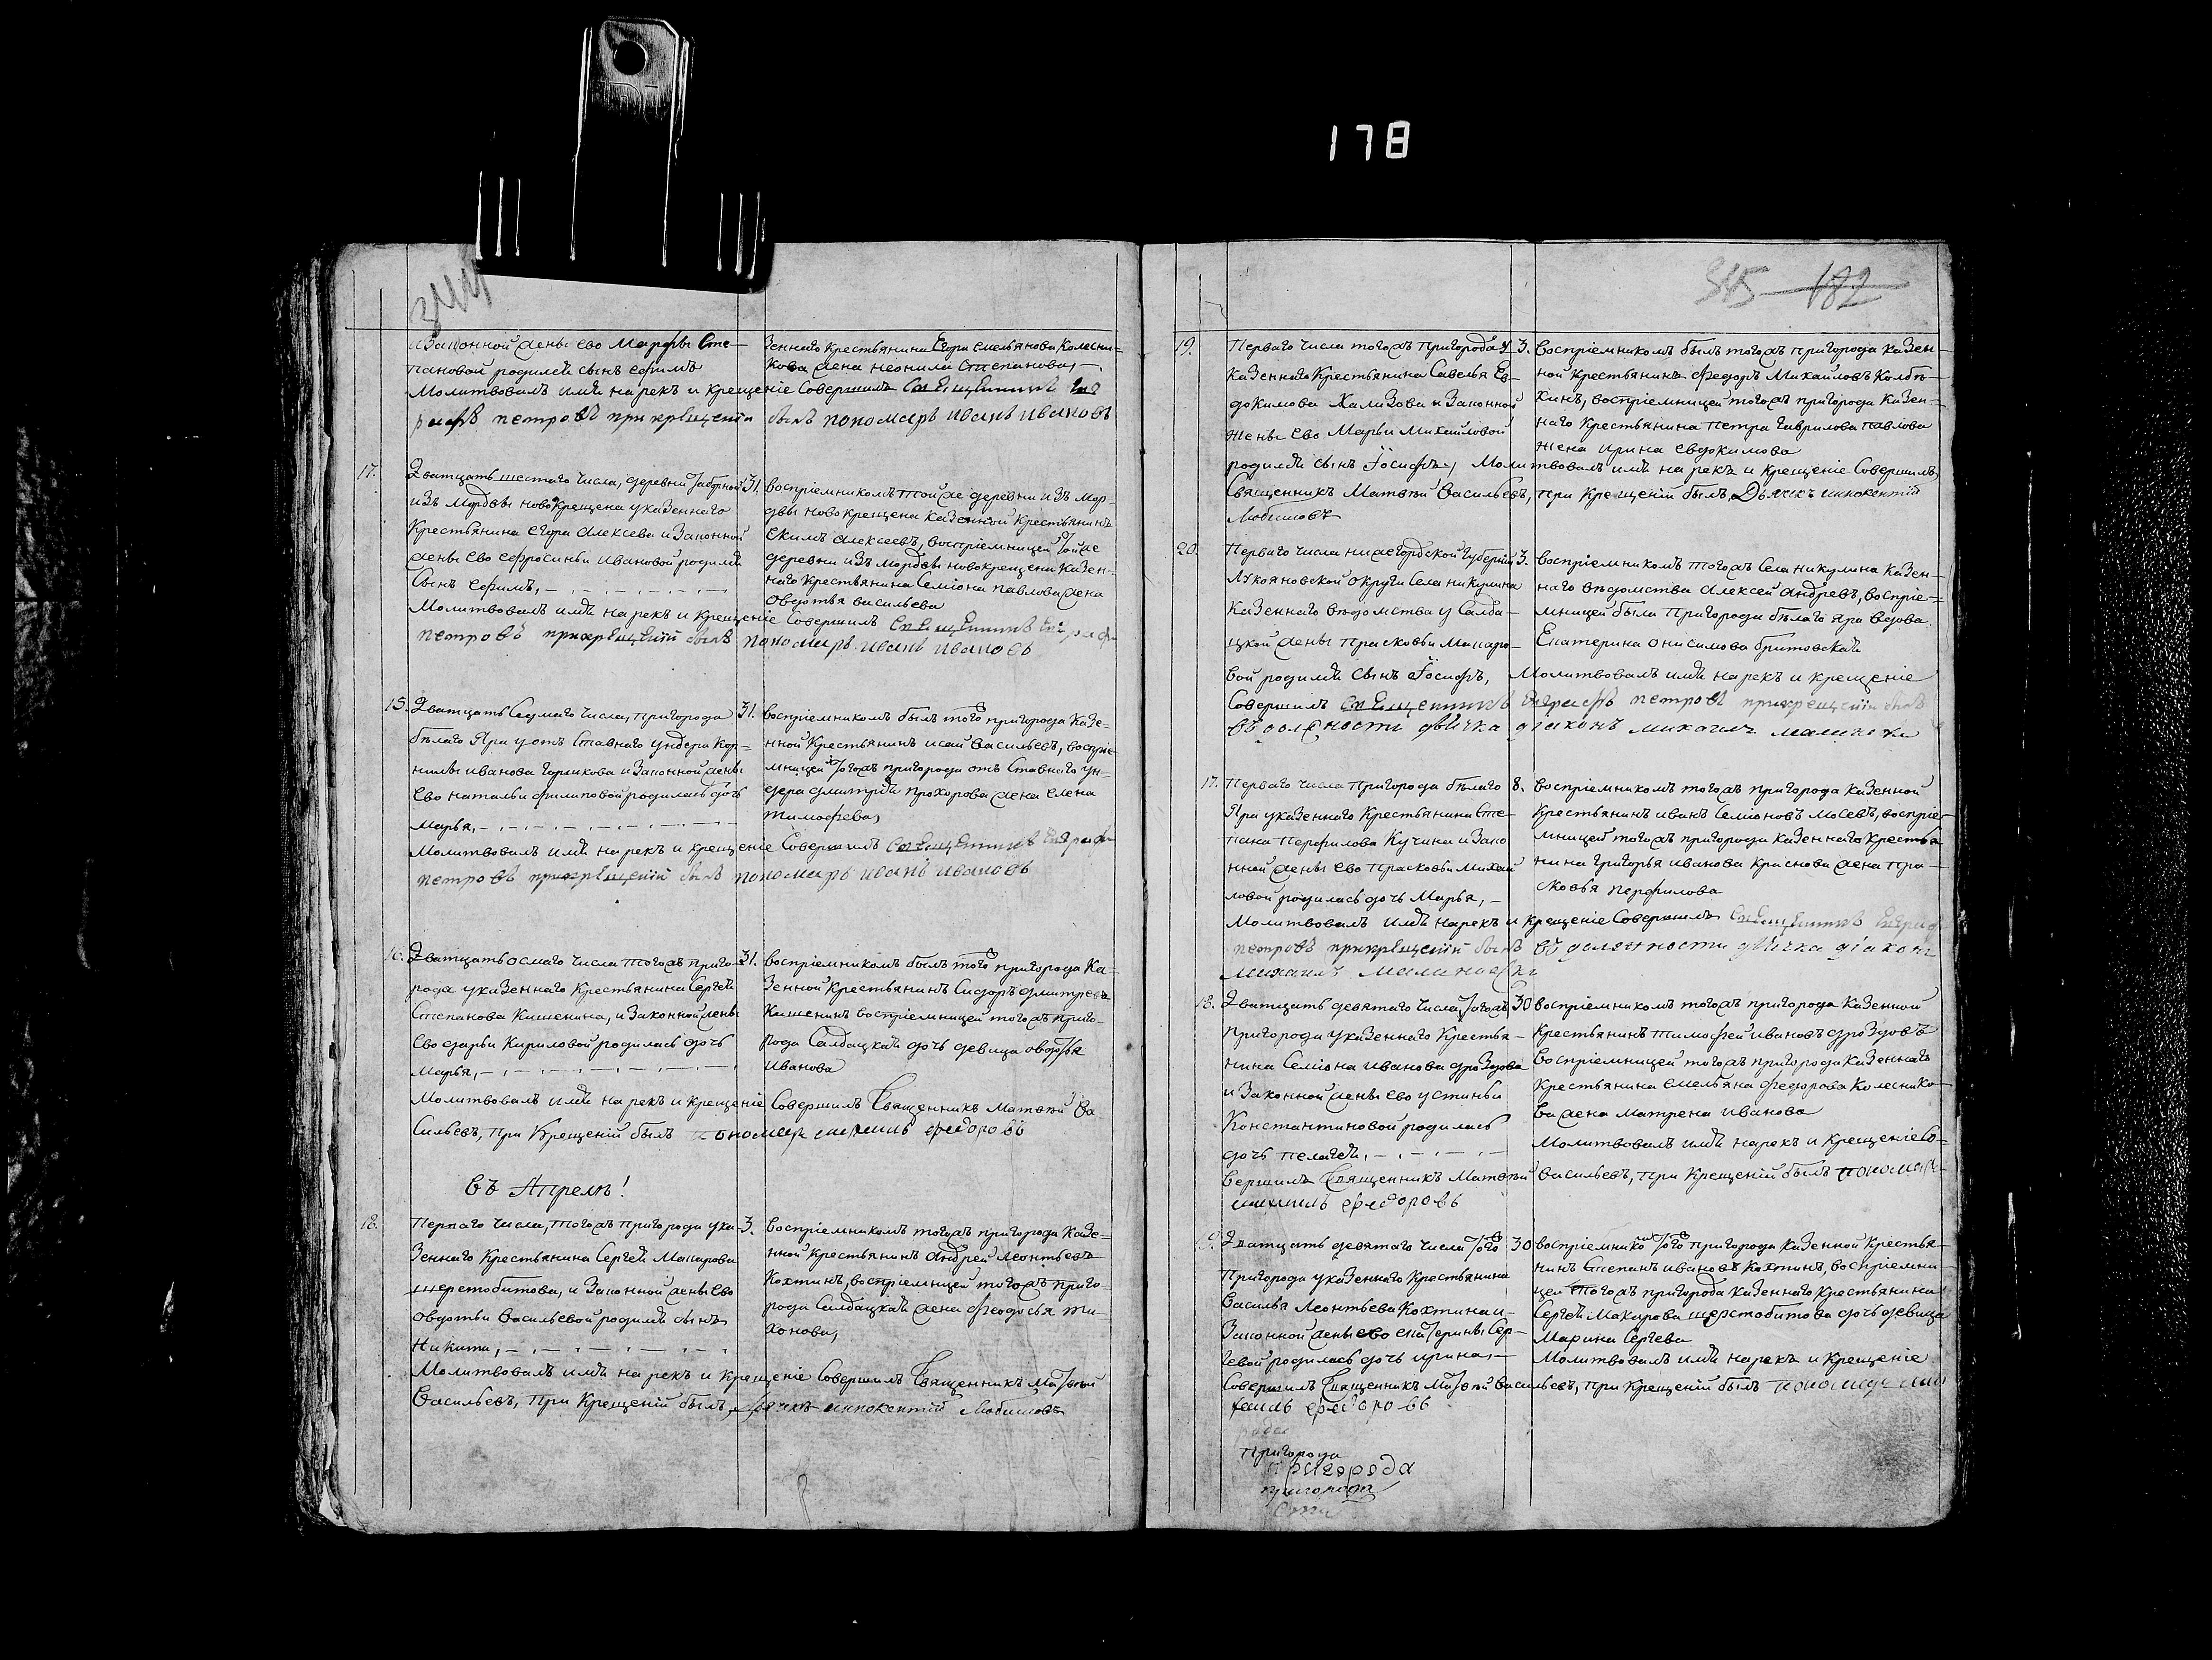 178
344
изаконной жены ево Марфы Сте-
пановой родился сынъ ефимъ
Зеннаго крестьянина Егора емельянова Колесни=
кова жена неонила Степанова,
Молитвовалъ имя нарекъ и крещеніе Совершилъ Священникъ Евг
рафъ петровъ при крещеніи былъ пономарь иванъ ивановъ
17. Дватцать шестаго числа, деревни
изъ Мордвы новокрещена указеннаго
Крестьянина егора Алексеева и Законной
жены ево ефросиньи ивановой родился
Сынъ ефимъ,
31. воспріемникомъ той же деревни изъ мор-
двы новокрещена казенной крестьянинъ
екимъ Алексеевъ, воспріемницей той же
деревни изъ мордвы новокрещена казен-
наго крестьянина Семіона павлова жена
Овдотья васильева
Молитвовалъ имя нарекъ и крещеніе Совершилъ Священникъ Евграфъ
петровъ прикрещеніи былъ пономарь иванъ ивановъ
15. Дватцать Седмаго числа, пригорода
бѣлаго Яра у отъ Ставнаго ундера Кор=
нилы иванова Горшкова и Законной жены
Ево натальи филиповой родилась дочь
Марья,
31. воспріемникомъ былъ того ж пригорода Казе=
нной Крестьянинъ исай Васильевъ, воспріе
мницей тогожъ пригорода отъ Ставнаго ун-
дера дмитрія прохорова жена елена
тимофева,
Молитвовалъ имя нарекъ и крещеніе Совершилъ Священникъ Евграфъ
петровъ прикрещеніи былъ пономарь иванъ ивановъ
16. Дватцать осмаго числа тогожъ приго-
рода указеннаго Крестьянина Сергея
Степанова Кишенина, и Законной жены
Ево дарьи Кириловой родилась дочь
Марья,
31. воспріемникомъ былъ того ж пригорода Ка=
зенной Крестьянинъ Сидоръ дмитрева
Кишенинъ воспріемницей тогожъ приго-
рода Салдацкая дочь девица овдотья
Иванова
Молитвовалъ имя нарекъ и крещеніе Совершилъ Священникъ Матвѣй Ва
сильевъ, при Крещеніи былъ пономарь михаилъ федоровъ
въ Апрелѣ!
18. Перваго числа, тогожъ пригорода ука-
зеннаго Крестьянина Сергея Макарова
шерстобитова, и Законной жены Ево
Овдотьи Васильевой родился сынъ
Никита,
3. воспріемникомъ тогожъ пригорода Казе=
нной Крестьянинъ Андрей Леонтьевъ
Кохтинъ, воспріемницей тогожъ приго-
рода Салдацкая жена феодосья ти-
хонова,
Молитвовалъ имя нарекъ и крещеніе Совершилъ Священникъ Матвѣй
Васильевъ, при Крещеніи былъ, дьячекъ иннокентій Любимовъ
345 182
19. Перваго числа тогожъ пригорода у
казеннаго Крестьянина Савелья Ев-
докимова Хализова и Законной
жены Ево Марьи Михайловой
3. воспріемникомъ былъ тогожъ пригорода казен-
ной крестьянинъ Федоръ Михайловъ Колбе-
кинъ, воспріемницей тогожъ пригорода казен-
наго Крестьянина петра Гаврилова павлова
жена ирина евдокимова
родился сынъ Іосифъ, Молитвовалъ имя нарекъ и крещеніе Совершилъ
Священникъ Матвѣй Васильевъ, при Крещеніи былъ, Дьячекъ иннокентій
Любимовъ
20. Перваго числа нижегородской Губерніи
Лукояновской округи Села никулина
казеннаго вѣдомства у Салда-
цкой жены прасковьи Макаро-
3. воспріемникомъ тогожъ Села никулина казен-
наго вѣдомства Алексей Андревъ, воспріе-
мницей была пригорода бѣлаго яра вдова
Екатерина Онисимова бритовская
вой родился сынъ Іосифъ, Молитвовалъ имя нарекъ и крещеніе
Совершилъ Священникъ Евграфъ петровъ прикрещеніи былъ
въ должности дьячка діаконъ михаилъ
17. Перваго числа пригорода бѣлаго
Яра указеннаго Крестьянина Сте-
пана Перфилова Кучина и Зако
нной жены ево прасковьи Михай
ловой родилась дочь Марья,
8. воспріемникомъ тогожъ пригорода казенной
Крестьянинъ иванъ Семіоновъ Мосевъ, воспріе-
мницей тогожъ пригорода казеннаго крестья
нина Григорья иванова краснова жена пра-
сковья перфилова
Молитвовалъ имя нарекъ и крещеніе Совершилъ Священникъ Евграфъ
петровъ прикрещеніи былъ въ должности дьячка діаконъ
михаилъ
18. Дватцать девятаго числа, тогожъ
пригорода указеннаго Крестья-
нина Семіона иванова дроздова
и Законной жены ево устиньи
Константиновой родилась
дочь пелагея,
30 воспріемникомъ тогожъ пригорода казенной
Крестьянинъ тимофей ивановъ дроздовъ
воспріемницей тогожъ пригорода казеннаго
Крестьянина емельяна федорова Колеснико-
ва жена матрена иванова
Молитвовалъ имя нарекъ и крещеніе Со=
вершилъ Священникъ Матвѣй Васильевъ, при Крещеніи былъ пономарь
михаилъ федоровъ
19. Дватцать девятаго числа того ж
пригорода указеннаго Крестьянина
Василья Леонтьева Кохтина и-
Законной жены ево екатерины Сер-
гевой родилась дочь ирина,
30 воспріемникомъ того ж пригорода казенной Крестья-
нинъ Степанъ ивановъ Кохтинъ, воспріемни-
цей тогожъ пригорода казеннаго крестьянина
Сергея Макарова шерстобитова дочь девица
Марина Сергева
Молитвовалъ имя нарекъ и крещеніе
Совершилъ Священникъ Матвѣй Васильевъ, при Крещеніи былъ пономарь ми
хаилъ федоровъ
пригорода
пригорода
пригорода